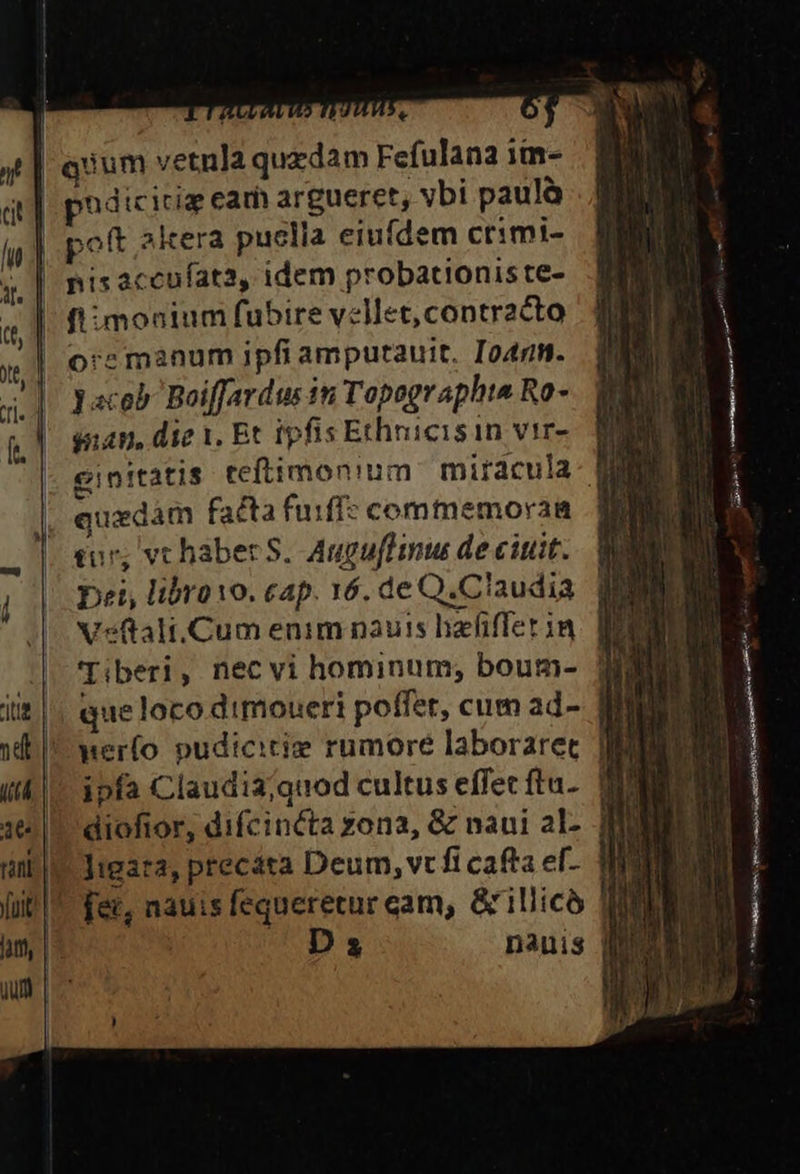 65
quum vetula quædam Fesulana im-
pudicitiæ eam argueret, vbi paulò
poſt altera puella eiuſdem crimi-
nis accuſata, idem probationis te-
ſtimonium ſubire vellet, contracto
ore manum ipſi amputauit. Ioann.
Iacob Boiſſardus in Topographia Ro-
man. die 1. Et ipſis Ethnicis in vir-
ginitatis teſtimonium miracula
quædam facta fuiſſe commemoran
tur, vt habet S. Auguſtinus de ciuit.
Dei, libro 10. cap. 16. de Q. Claudia
Veſtali. Cum enim nauis hæſiſſet in
Tiberi, nec vi hominum, boum-
que loco dimoueri poſſet, cum ad-
uerſo pudicitiæ rumore laboraret
ipſa Claudia, quod cultus eſſet ſtu-
dioſior, diſcincta zona, & naui al-
ligata, precata Deum, vt ſi caſta eſ-
ſet, nauis ſequeretur eam, & illicò
D 5 nauis